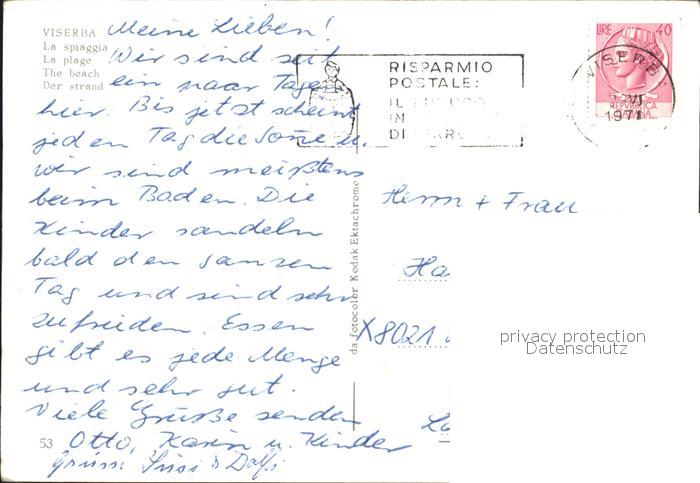 VISERBA
La spiaggia
La plage
The beach
Der strand
Meine Lieben!
Wir sind seit
ein paar Tagen
hier. Bis jetzt scheint
jeden Tag die Sonne u.
wir sind meißtens
beim Baden. Die
Kinder sandeln
bald den ganzen
Tag und sind sehr
zufrieden. Essen
gibt es jede Menge
und sehr gut.
Viele Grüße senden
Otto, Karin u. Kinder
53
da fotocolor Kodak Ektachrome
RISPARMIO
POSTALE:
IL
IN
DI
LIRE 40
VISERB
VI
1971
REPVBBLICA
Herrn + Frau
Ha
X8021
privacy protection
Datenschutz